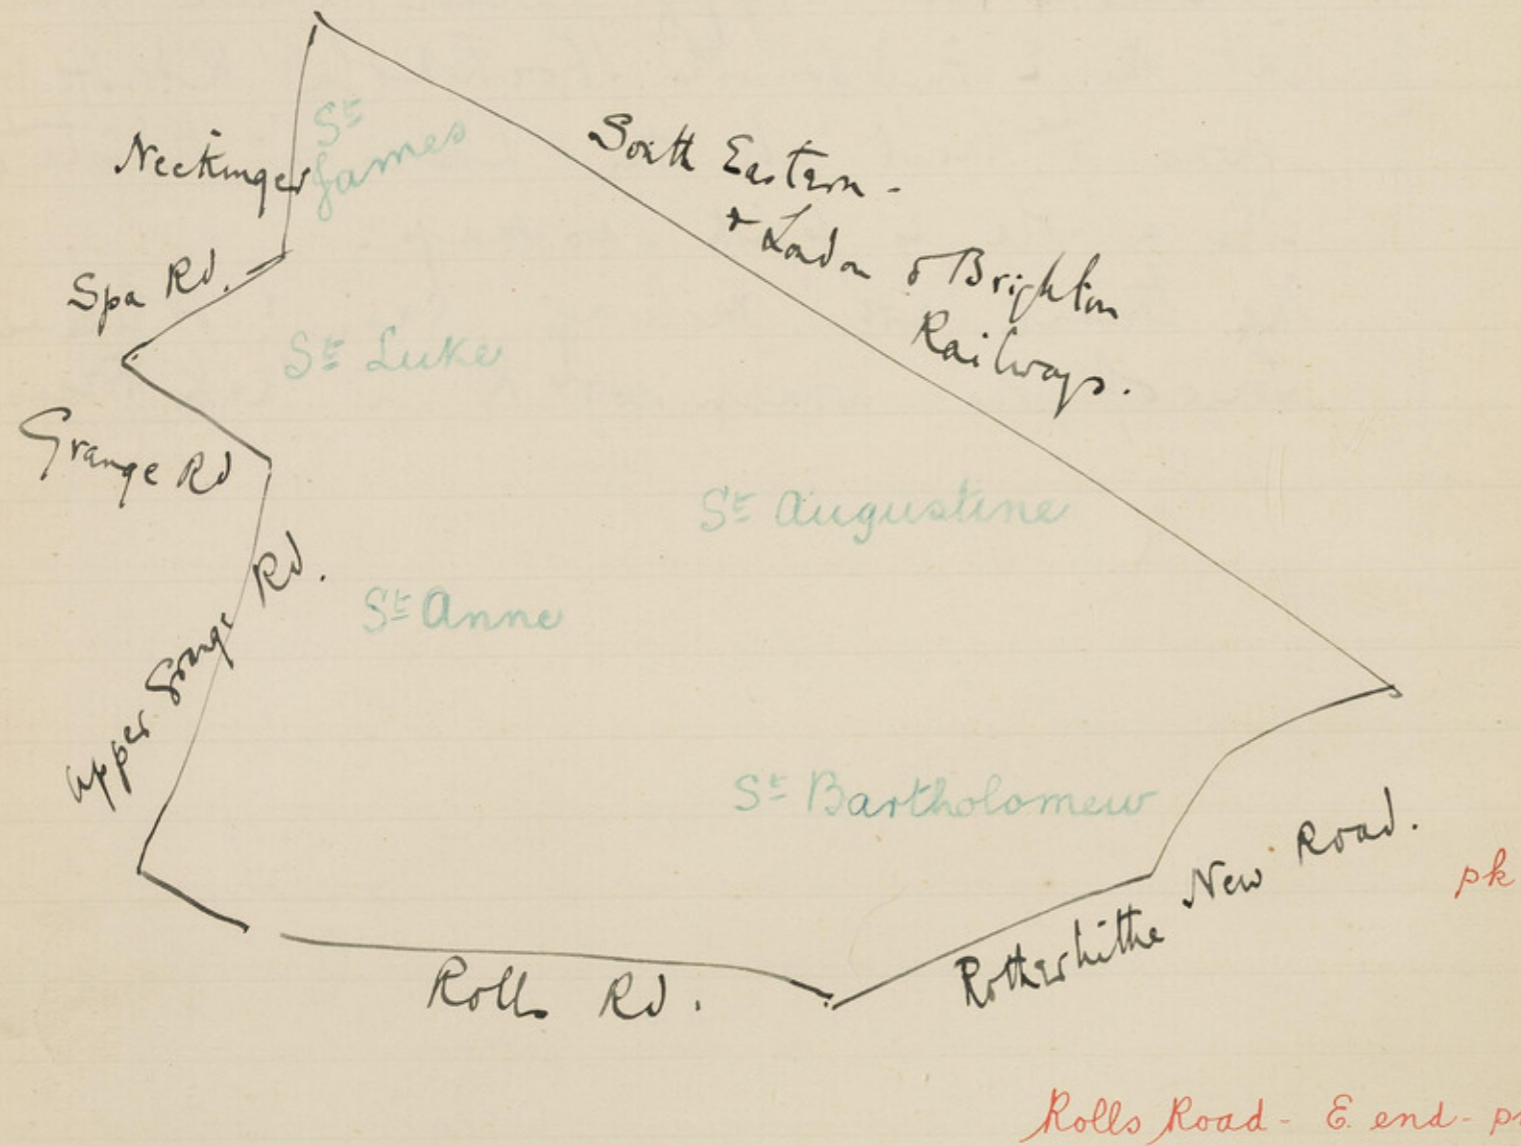 St
James
Neckinger
South Eastern -
+ London & Brighton
Railways.
Spa Rd.
St Luke
Grange Rd
St Augustine
Upper Grange Rd.
St Anne
St Bartholomew
Rotherhithe New Road.
pk
Rolls Rd.
Rolls Road - E. end -